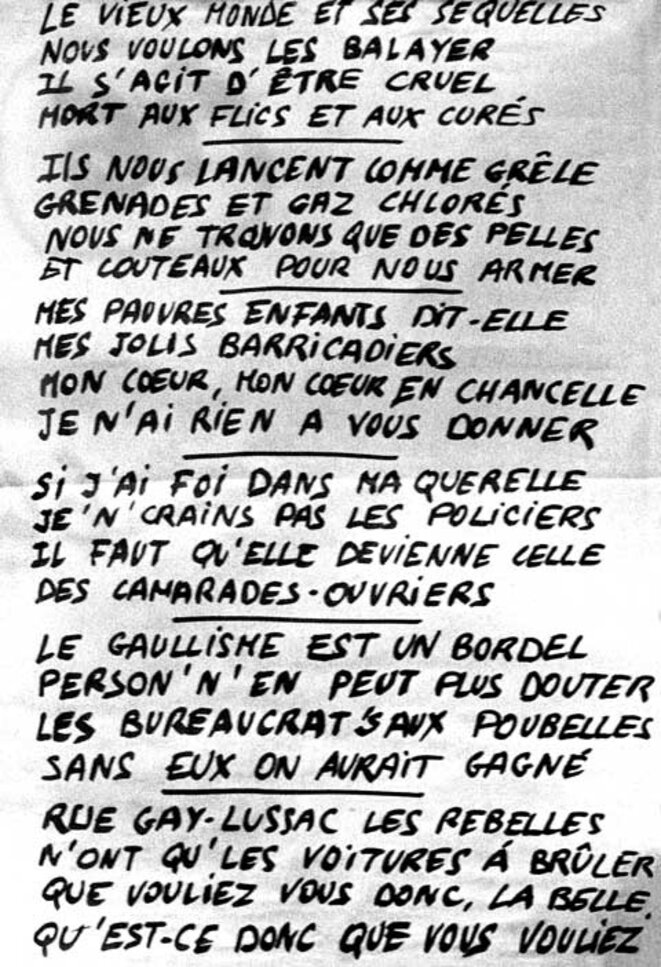 LE VIEUX MONDE ET SES SEQUELLES
NOUS VOULONS LES BALAYER
IL S'AGIT D'ÊTRE CRUEL
MORT AUX FLICS ET AUX CURÉS
ILS NOUS LANCENT COMME GRÊLE
GRENADES ET GAZ CHLORÉS
NOUS NE TROUVONS QUE DES PELLES
ET COUTEAUX POUR NOUS ARMER
MES PAUVRES ENFANTS DIT-ELLE
MES JOLIS BARRICADIERS
MON COEUR, MON COEUR EN CHANCELLE
JE N'AI RIEN A VOUS DONNER
SI J'AI FOI DANS MA QUERELLE
JE'N'CRAINS PAS LES POLICIERS
IL FAUT QU'ELLE DEVIENNE CELLE
DES CAMARADES-OUVRIERS
LE GAULLISME EST UN BORDEL
PERSON'N'EN PEUT PLUS DOUTER
LES BUREAUCRAT'S AUX POUBELLES
SANS EUX ON AURAIT GAGNÉ
RUE GAY-LUSSAC LES REBELLES
N'ONT QU'LES VOITURES Á BRÛLER
QUE VOULIEZ VOUS DONC, LA BELLE,
QU'EST-CE DONC QUE VOUS VOULIEZ